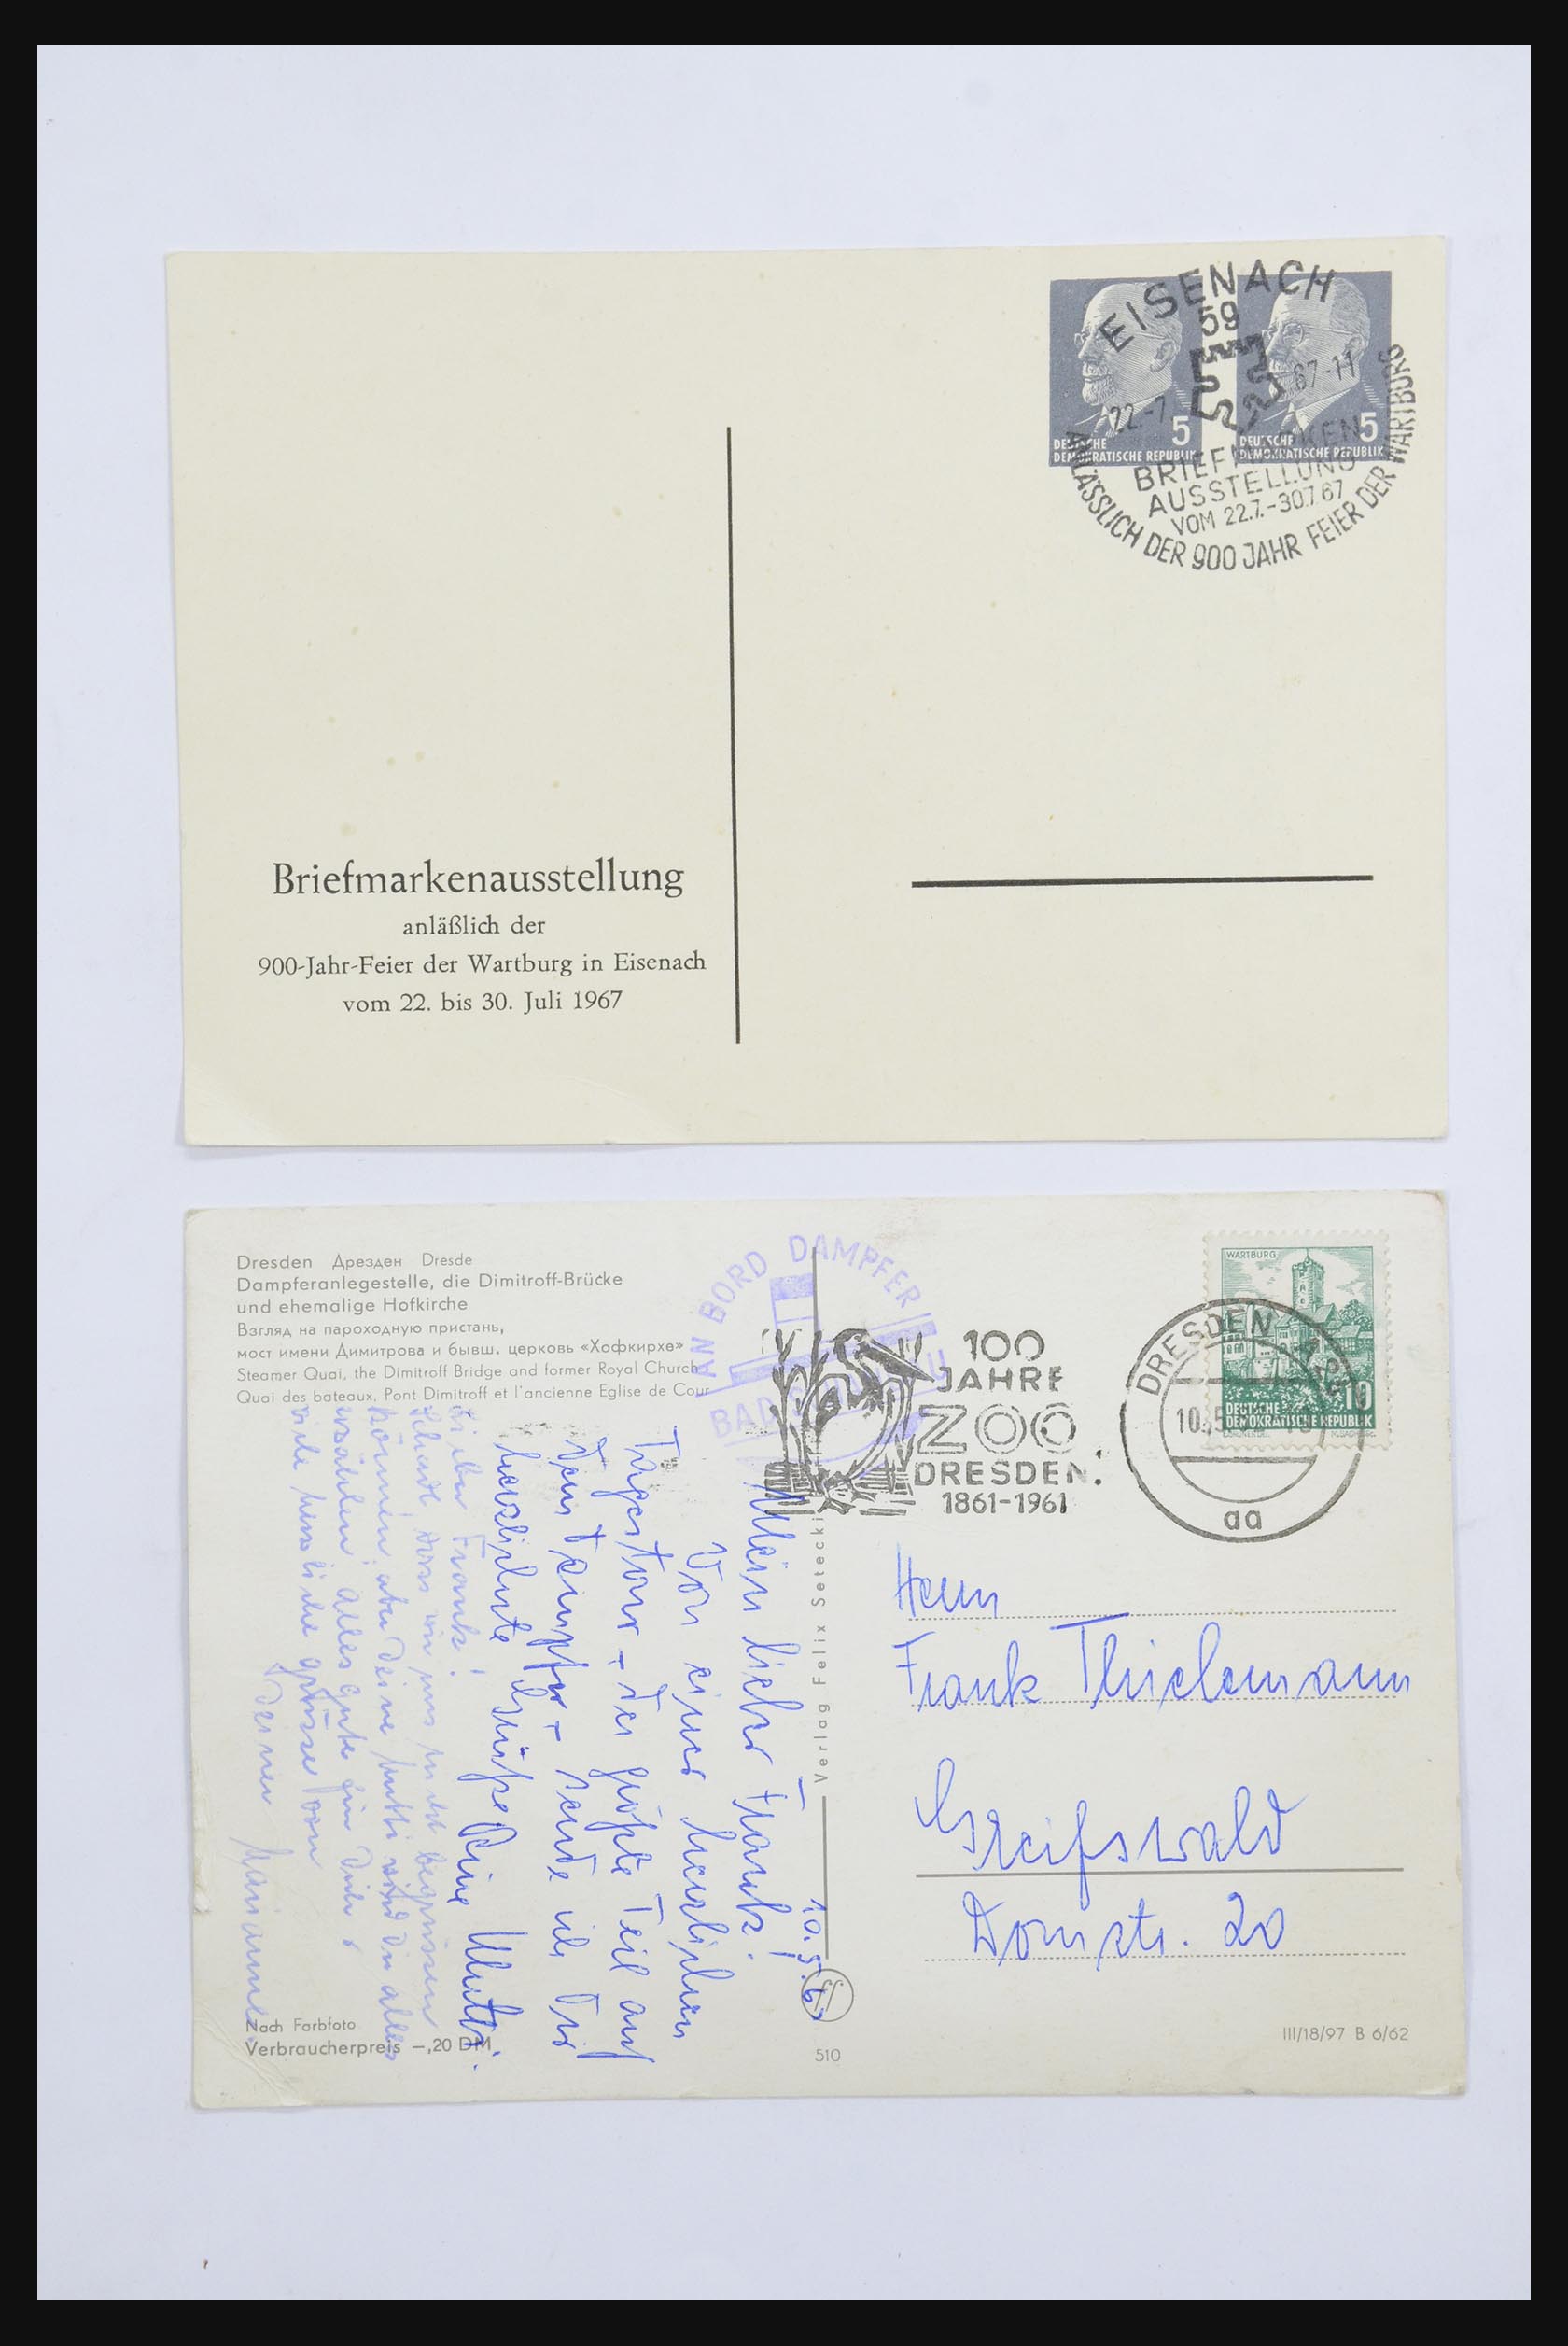 EISENACH
59
22.-7. 67-11
BRIEFMARKEN
AUSSTELLUNG
VOM 22.7.-30.7.67
ANLÄSSLICH DER 900 JAHR FEIER DER WARTBURG
5
DEUTSCHE
DEMOKRATISCHE REPUBLIK
5
DEUTSCHE
DEMOKRATISCHE REPUBLIK
Briefmarkenausstellung
anläßlich der
900-Jahr-Feier der Wartburg in Eisenach
vom 22. bis 30. Juli 1967
Dresden Дрезден Dresde
Dampferanlegestelle, die Dimitroff-Brücke
und ehemalige Hofkirche
Взгляд на пароходную пристань,
мост имени Димитрова и бывш. церковь «Хофкирхе»
Steamer Quai, the Dimitroff Bridge and former Royal Church
Quai des bateaux, Pont Dimitroff et l'ancienne Eglise de Cour
AN BORD DAMPFER
BAD
100
JAHRE
ZOO
DRESDEN
1861-1961
DRESDEN
10.5
aa
WARTBURG
10
DEUTSCHE
DEMOKRATISCHE REPUBLIK
10.5.6
Mein lieber Frank!
Von einer herrlichen
Tagestour - der größte Teil auf
dem Dampfer - sende ich Dir
herzlichste Grüße Deine Mutti.
Lieber Frank!
Schade, dass wir uns nicht begrüssen
können, aber Deine Mutti wird Dir alles
erzählen. Alles Gute für Dich
viele herzliche Grüsse von
Deiner Marianne
Verlag Felix Setecki
Herrn
Frank Thielemann
Greifswald
Domstr. 20
Nach Farbfoto
Verbraucherpreis –,20 DM
510
III/18/97 B 6/62